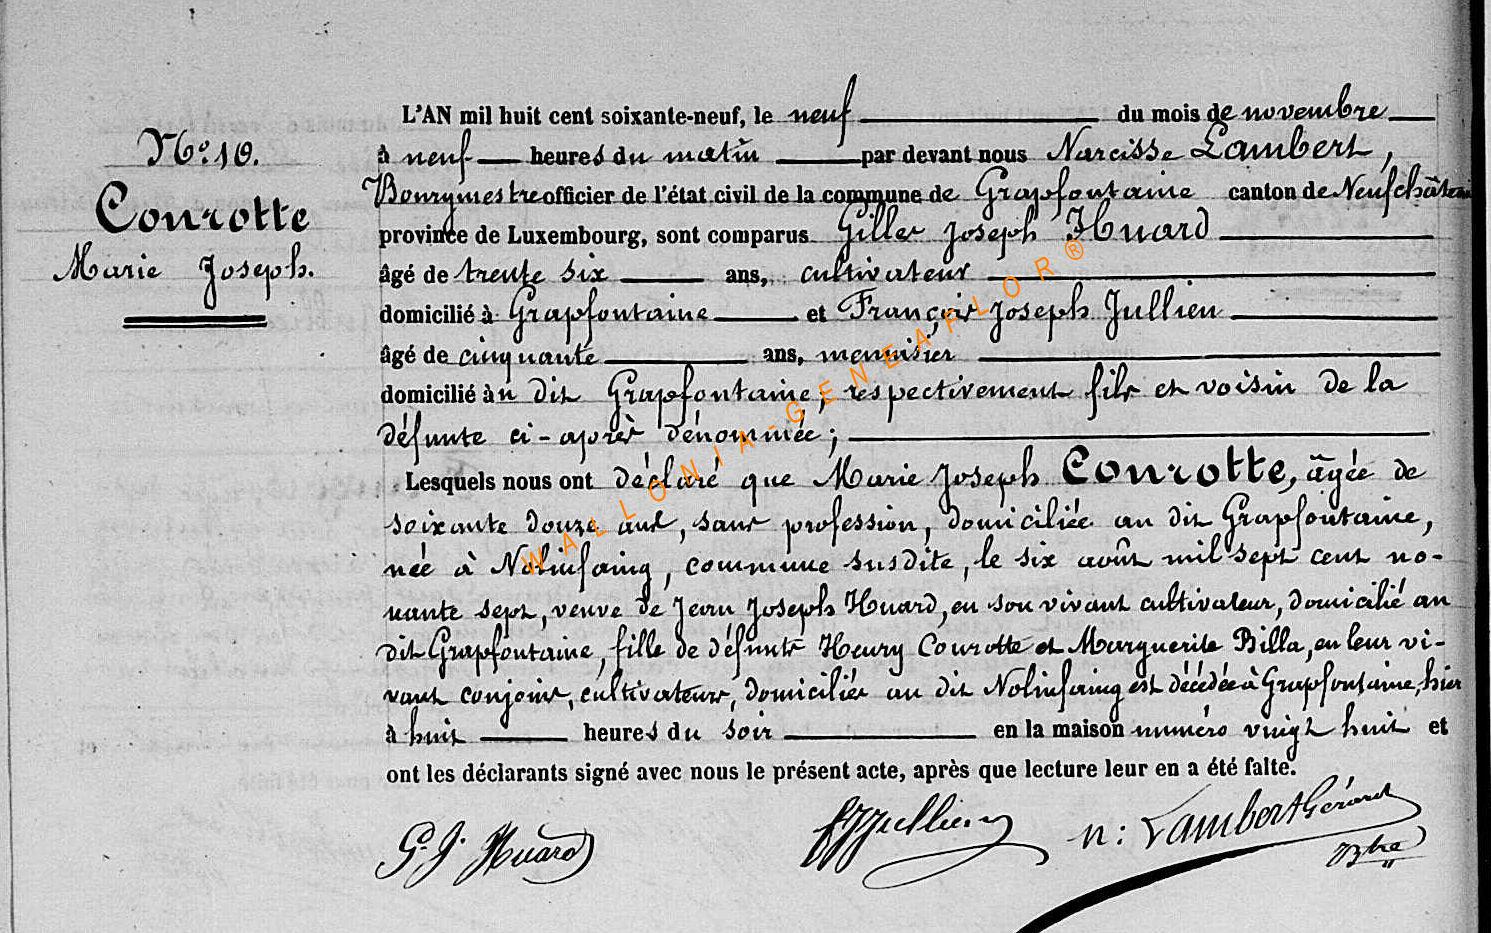 L'AN mil huit cent soixante-neuf, le neuf du mois de novembre
N° 19.
à neuf heures du matin par devant nous Narcisse Lambert,
Courotte
Bourgmestre officier de l'état civil de la commune de Grapfontaine canton de Neufchâteau
province de Luxembourg, sont comparus Gilles Joseph Huard
Marie Joseph.
âgé de trente six ans, cultivateur
domicilié à Grapfontaine et François Joseph Jullien
âgé de cinquante ans, menuisier
domicilié au dit Grapfontaine, respectivement fils et voisin de la
défunte ci-après dénommée;
Lesquels nous ont déclaré que Marie Joseph Courotte, âgée de
soixante douze ans, sans profession, domiciliée au dit Grapfontaine,
née à Nolinfaing, commune susdite, le six août mil sept cent no-
nante sept, veuve de Jean Joseph Huard, en son vivant cultivateur, domicilié au
dit Grapfontaine, fille de défunts Henry Courotte et Marguerite Billa, en leur vi-
vant conjoins, cultivateurs, domiciliés au dit Nolinfaing est décédée à Grapfontaine, hier
à huit heures du soir en la maison numéro vingt huit et
ont les déclarants signé avec nous le présent acte, après que lecture leur en a été faite.
G. J. Huard
FJJullien
n: Lambert Gérard
Btre
WALLONIA-GENEAFLOR®